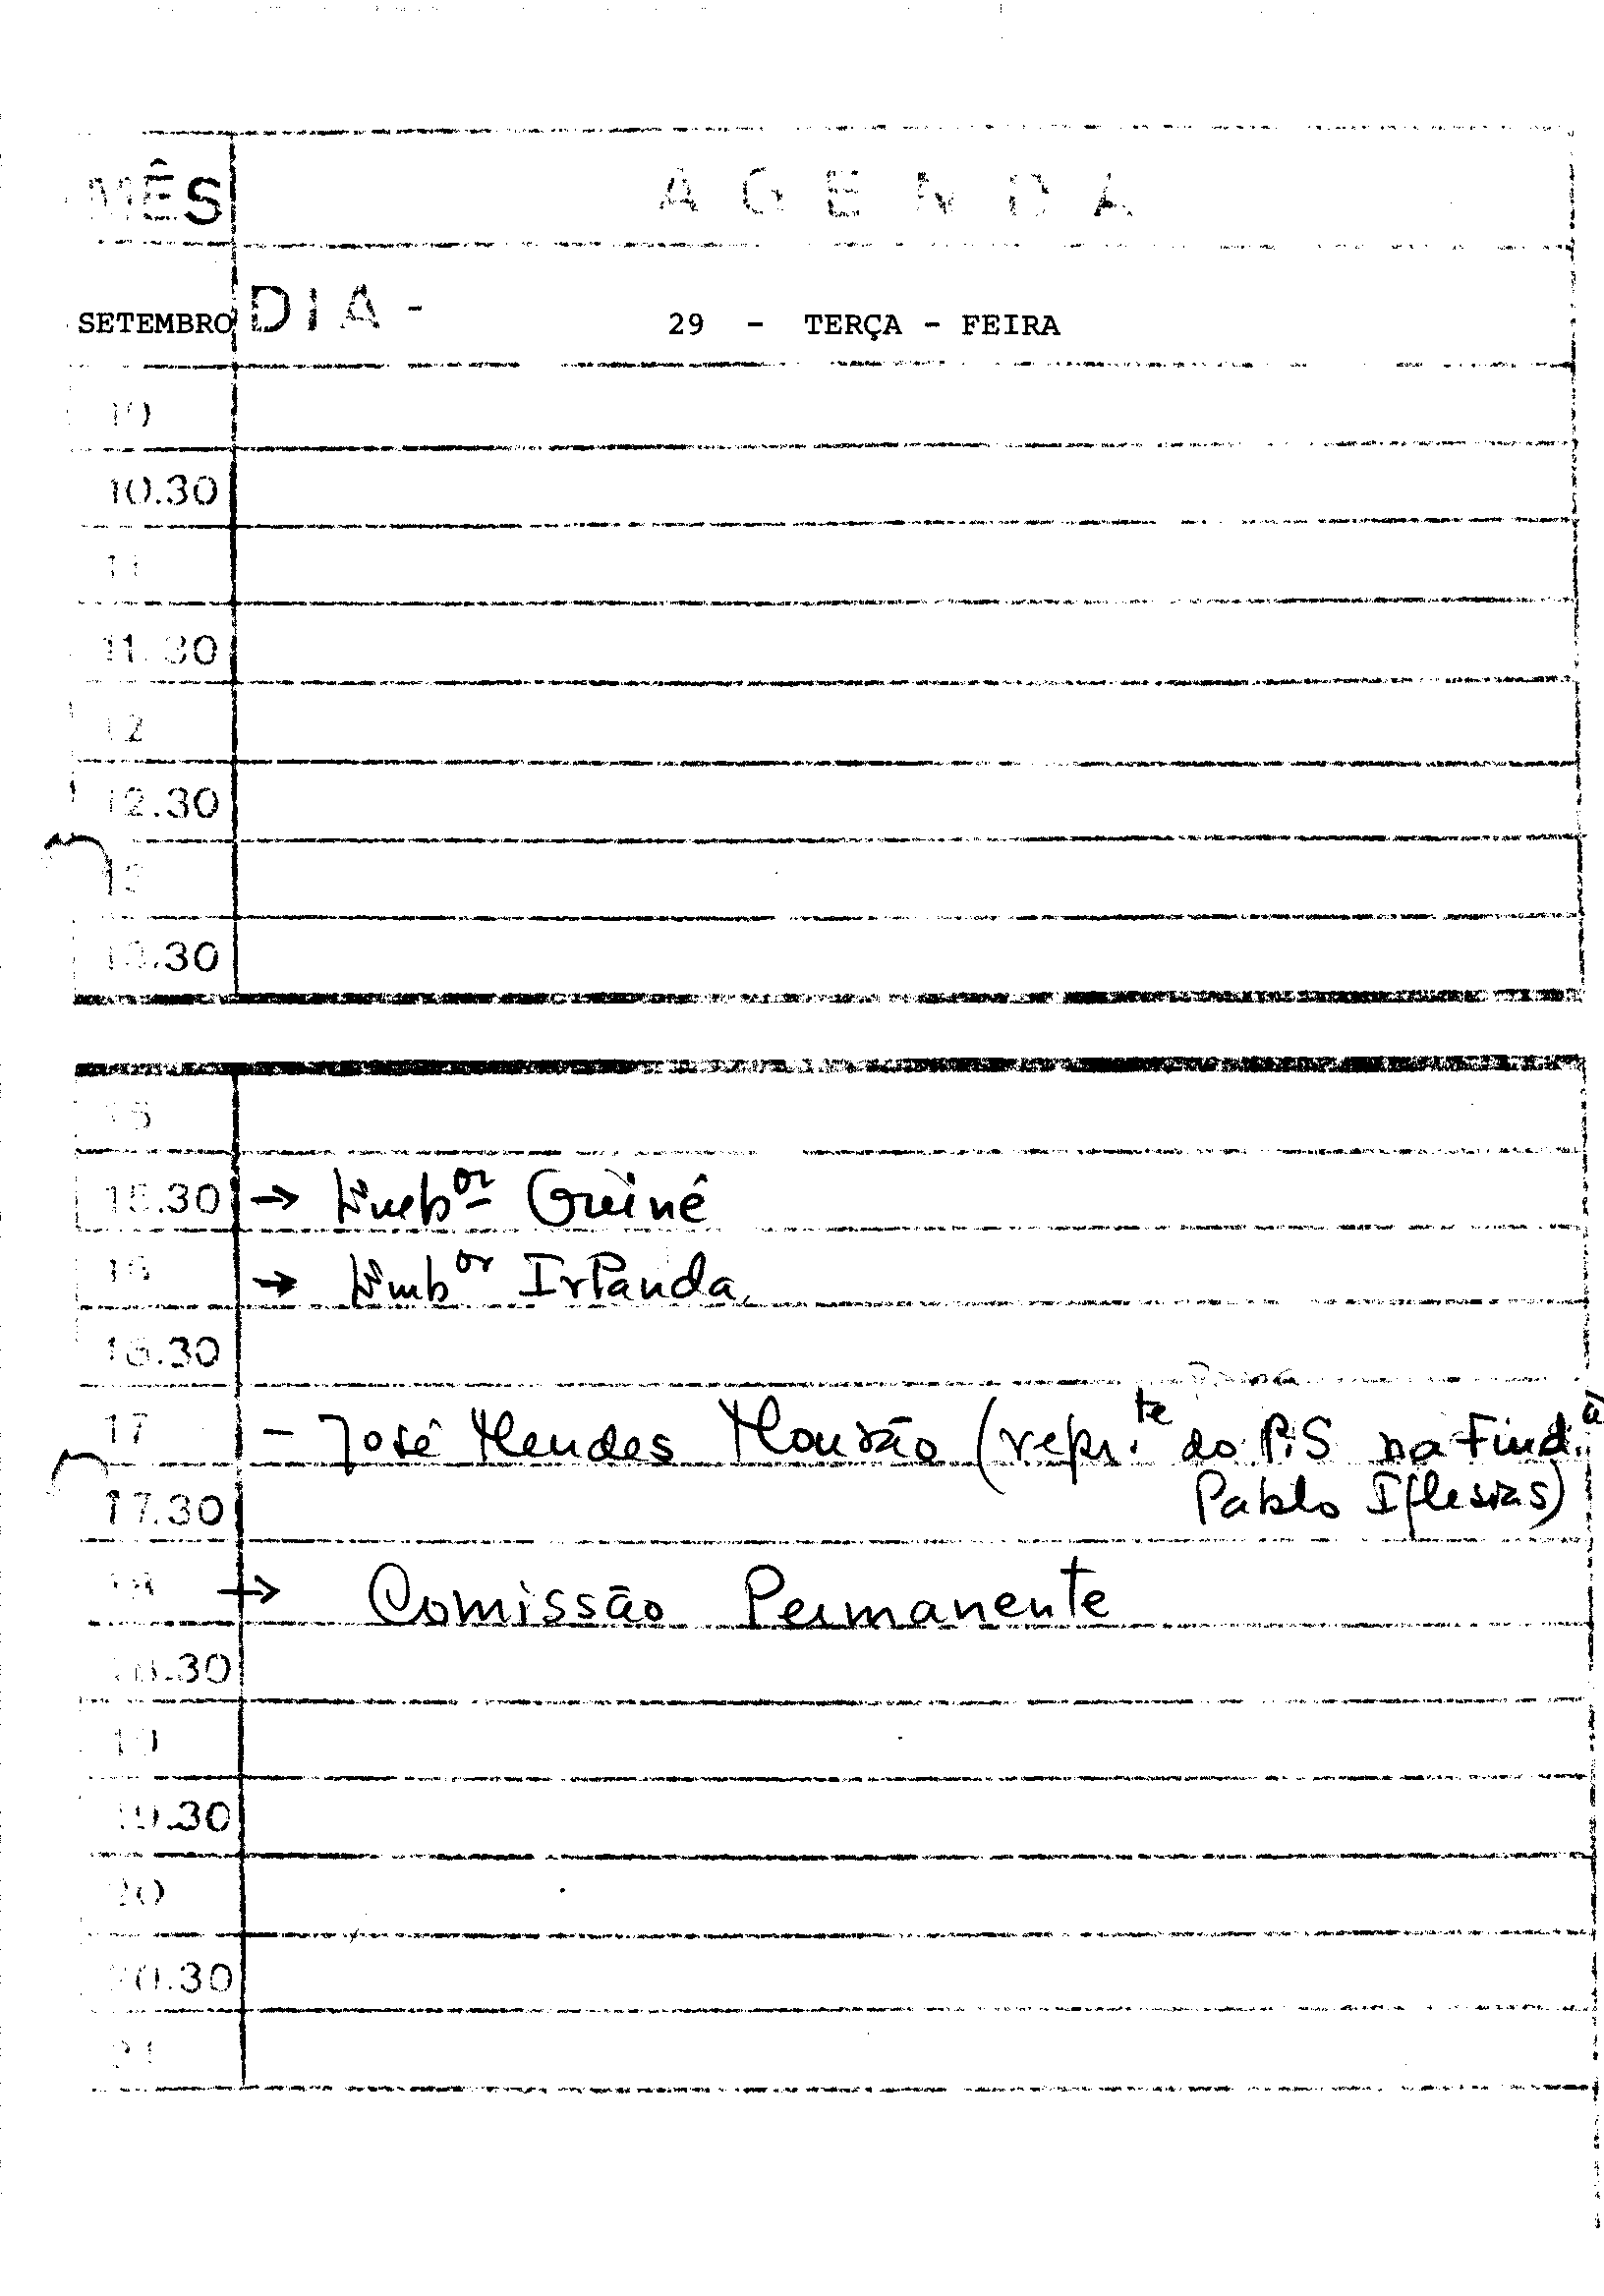 MÊS AGENDA
SETEMBRO DIA - 29 - TERÇA - FEIRA
10
10.30
11
11.30
12
12.30
13
13.30
15
15.30 → Emb.or Guiné
16 → Embor Irlanda
16.30
17 - José Mendes Mourão (repr.te do P.S na Fund.ã
17.30 Pablo Iglesias)
18 → Comissão Permanente
18.30
19
19.30
20
20.30
21